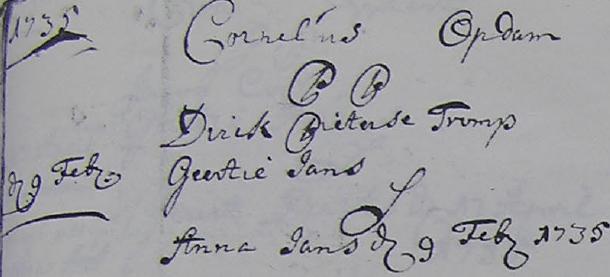 1735 Cornelius Opdam
P P
Dirk Pieterse Tromp
Geertie Jans
d 9 Feb
Anna Jans d 9 Feb 1735